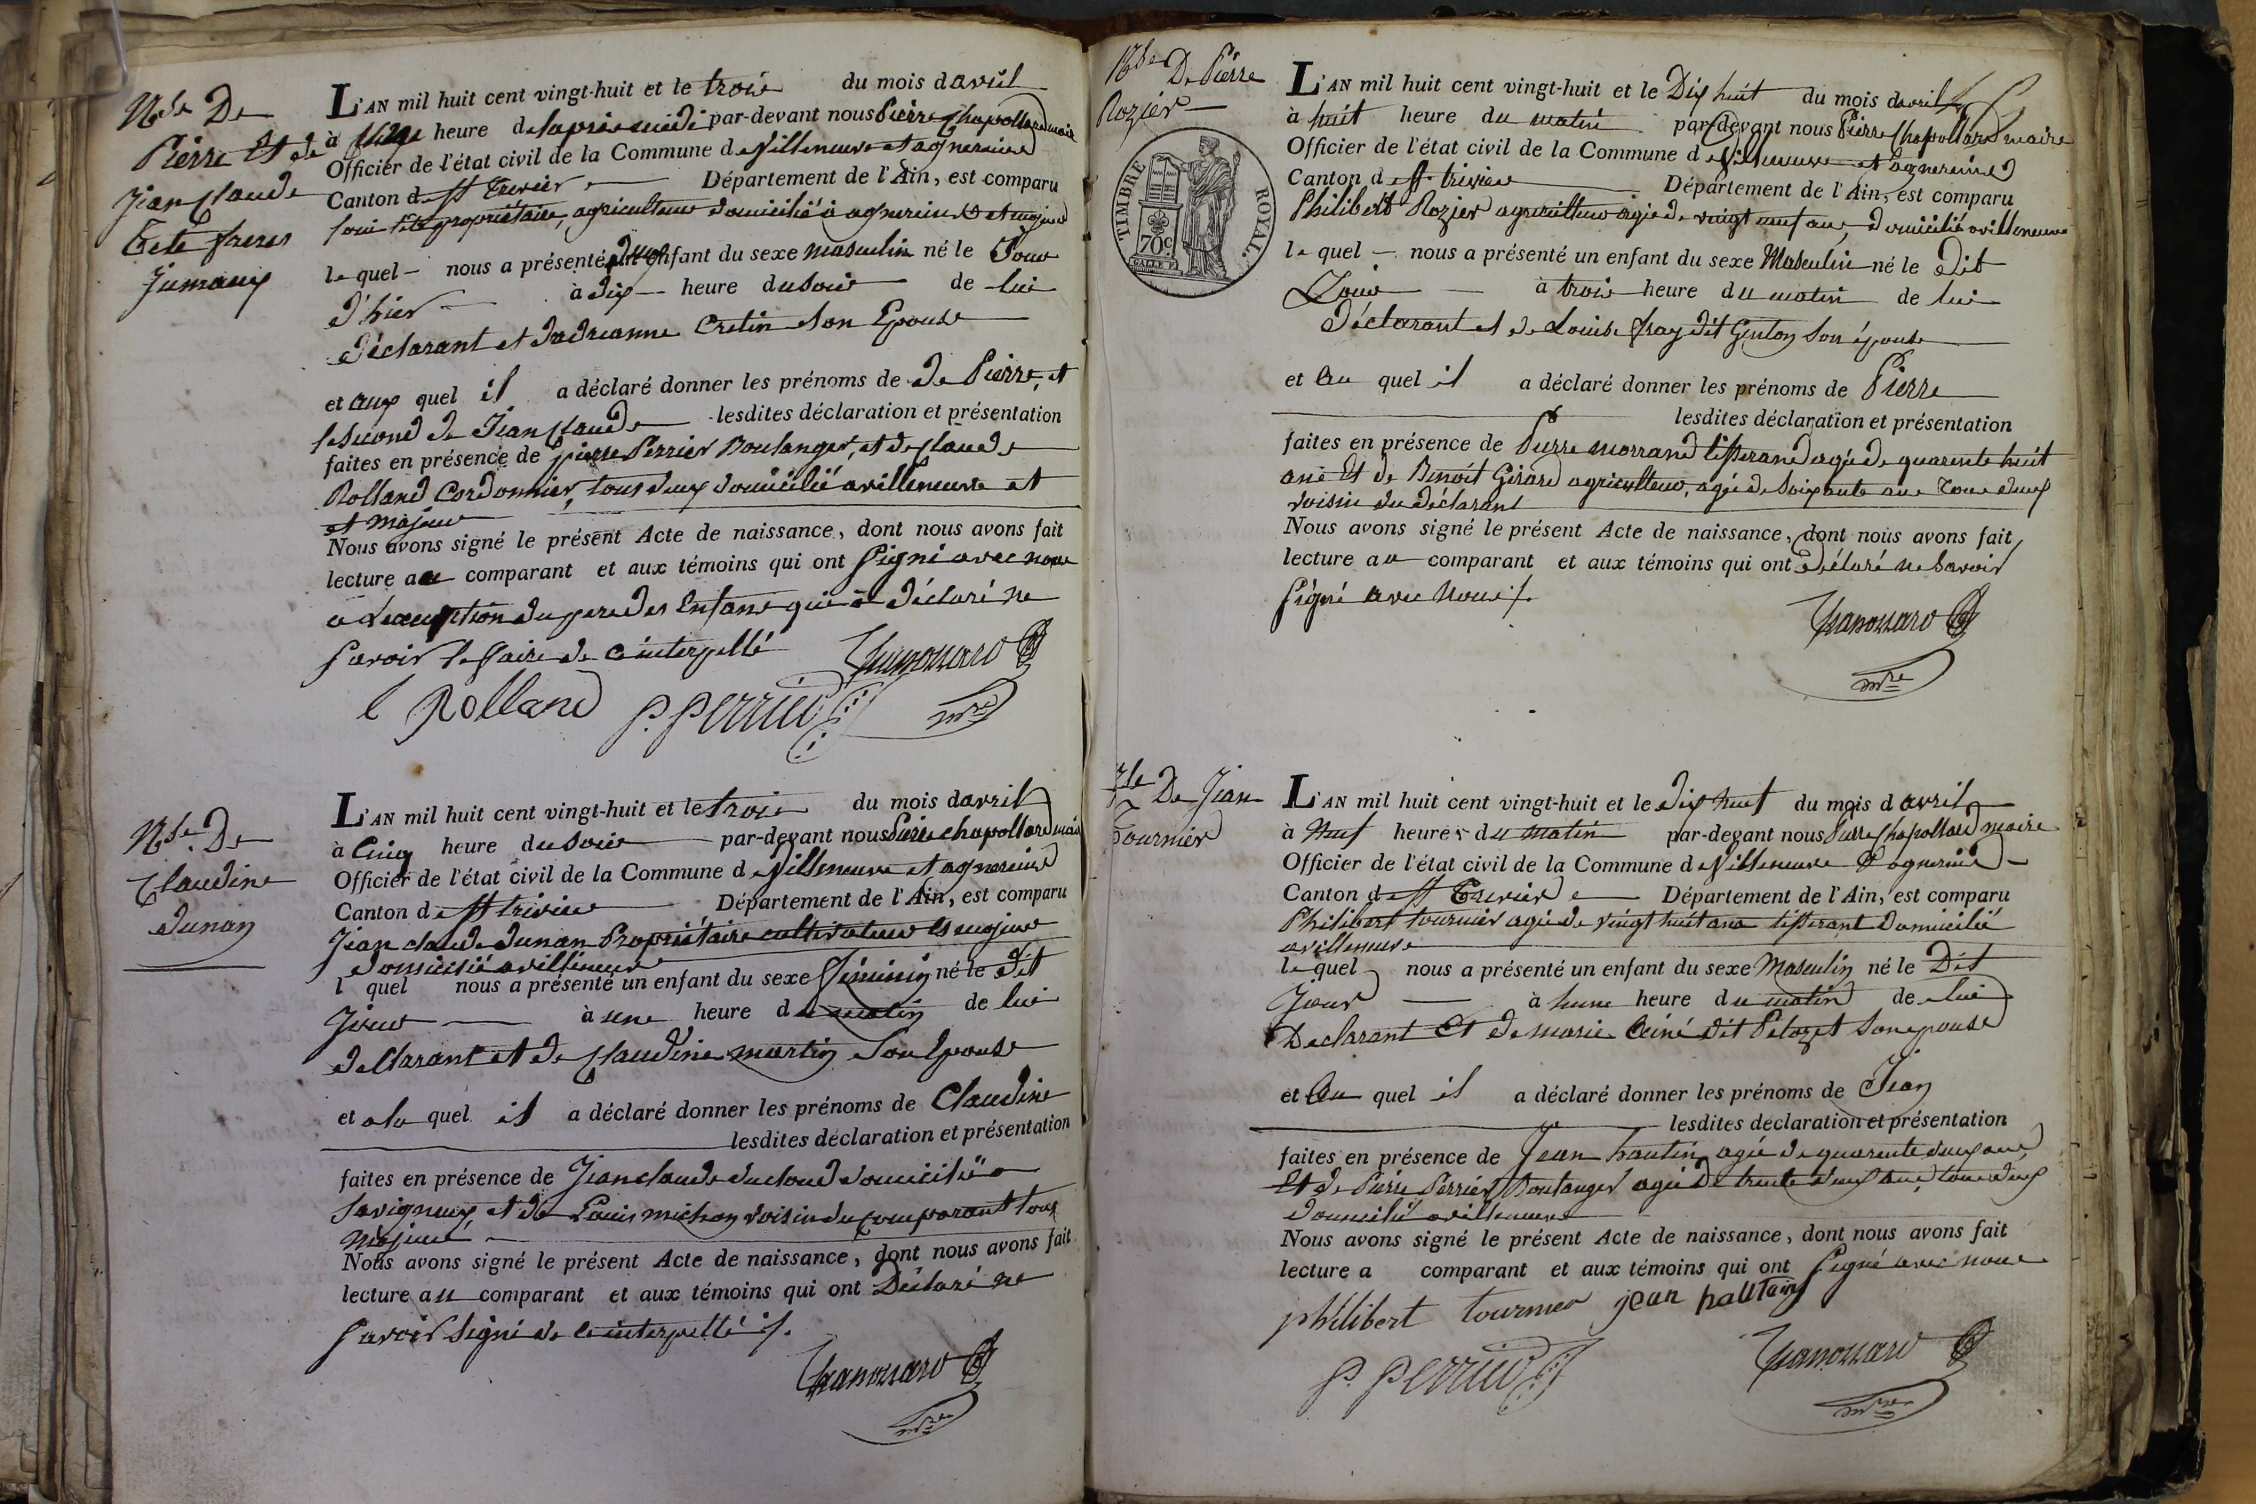 Nde De
Pierre Et de
Jean Claude
Tété freres
Jumaux
L'AN mil huit cent vingt-huit et le trois du mois davril
à heure delaprès midi par-devant nous Pierre Chapollard maire
Officier de l'état civil de la Commune de Villeneuve et agnereins
Canton de St trivier Département de l'Ain, est comparu
propriétaire, agriculteur domicilié à agnereins et majeur
le quel nous a présenté deux enfant du sexe masculin né le Jour
d'hier à dix heure du soir de lui
déclarant et dadrianne Cretin son Epouse
et aux quel il a déclaré donner les prénoms de de Pierre, et
le second de Jean Claude lesdites déclaration et présentation
faites en présence de pierre Perrier Boulanger, et de Claude
Rolland Cordonnier, tous deux domicilié a villeneuve et
et majeur
Nous avons signé le présent Acte de naissance, dont nous avons fait
lecture au comparant et aux témoins qui ont signé avec nous
a Lexception du pere des Enfans qui a déclaré ne
savoir le faire de ce interpellé
C Rolland P. Perrier mre
Nde De
Claudine
dunan
L'AN mil huit cent vingt-huit et le trois du mois davril
à Cinq heure du soir par-devant nous Pierre chapollard maire
Officier de l'état civil de la Commune de Villeneuve et agnereins
Canton de St trivier Département de l'Ain, est comparu
Jean claude dunan Propriétaire cultivateur et majeur
domicilié a villeneuve
l quel nous a présenté un enfant du sexe féminin né le dit
Jour à une heure du matin de lui
declarant et de Claudine martin son Epouse
et a la quel il a déclaré donner les prénoms de Claudine
lesdites déclaration et présentation
faites en présence de Jean claude ducloud domicilié a
Savigneux et de Louis michon voisin du comparant tous
majeur
Nous avons signé le présent Acte de naissance, dont nous avons fait
lecture au comparant et aux témoins qui ont Déclaré ne
savoir signé de ce interpellé ./.
mre
Nde De Pierre
Rozier
TIMBRE ROYAL.
70c
L'AN mil huit cent vingt-huit et le Dix huit du mois davril
à huit heure du matin par-devant nous Pierre Chapollard maire
Officier de l'état civil de la Commune de Villeneuve et agnereins
Canton de St trivier Département de l'Ain, est comparu
Philibert Rozier agriculteur agé de vingt neuf ans, domicilié a villeneuve
le quel nous a présenté un enfant du sexe Masculin né le dit
Jour à trois heure du matin de lui
déclarant et de Louise fray dit Guiton son épouse
et au quel il a déclaré donner les prénoms de Pierre
lesdites déclaration et présentation
faites en présence de Pierre morrand tisserand agé de quarente huit
ans Et de Benoît Girard agriculteur, agé de soixante ans tous deux
voisin du déclarant
Nous avons signé le présent Acte de naissance, dont nous avons fait
lecture au comparant et aux témoins qui ont déclaré ne savoir
signé avec nous ./.
mre
Nde De Jean
Tournier
L'AN mil huit cent vingt-huit et le dix huit du mois d avril
à Neuf heures du matin par-devant nous Pierre Chapollard maire
Officier de l'état civil de la Commune de Villeneuve & agnereins
Canton de St Trivier Département de l'Ain, est comparu
Philibert tournier agé de vingt huit ans tisserant Domicilié
a villeneuve
le quel nous a présenté un enfant du sexe Masculin né le Dit
Jour à hune heure du matin de lui
Declarant Et de marie Ainé dit Pelozet son epouse
et au quel il a déclaré donner les prénoms de Jean
lesdites déclaration et présentation
faites en présence de Jean hautin agé de quarente deux ans
Et de Pierre Perrier Boulanger agé de trente deux ans, tous deux
domicilié a villeneuve
Nous avons signé le présent Acte de naissance, dont nous avons fait
lecture a comparant et aux témoins qui ont signé avec nous
philibert tournier jean hautain
P. Perrier mre